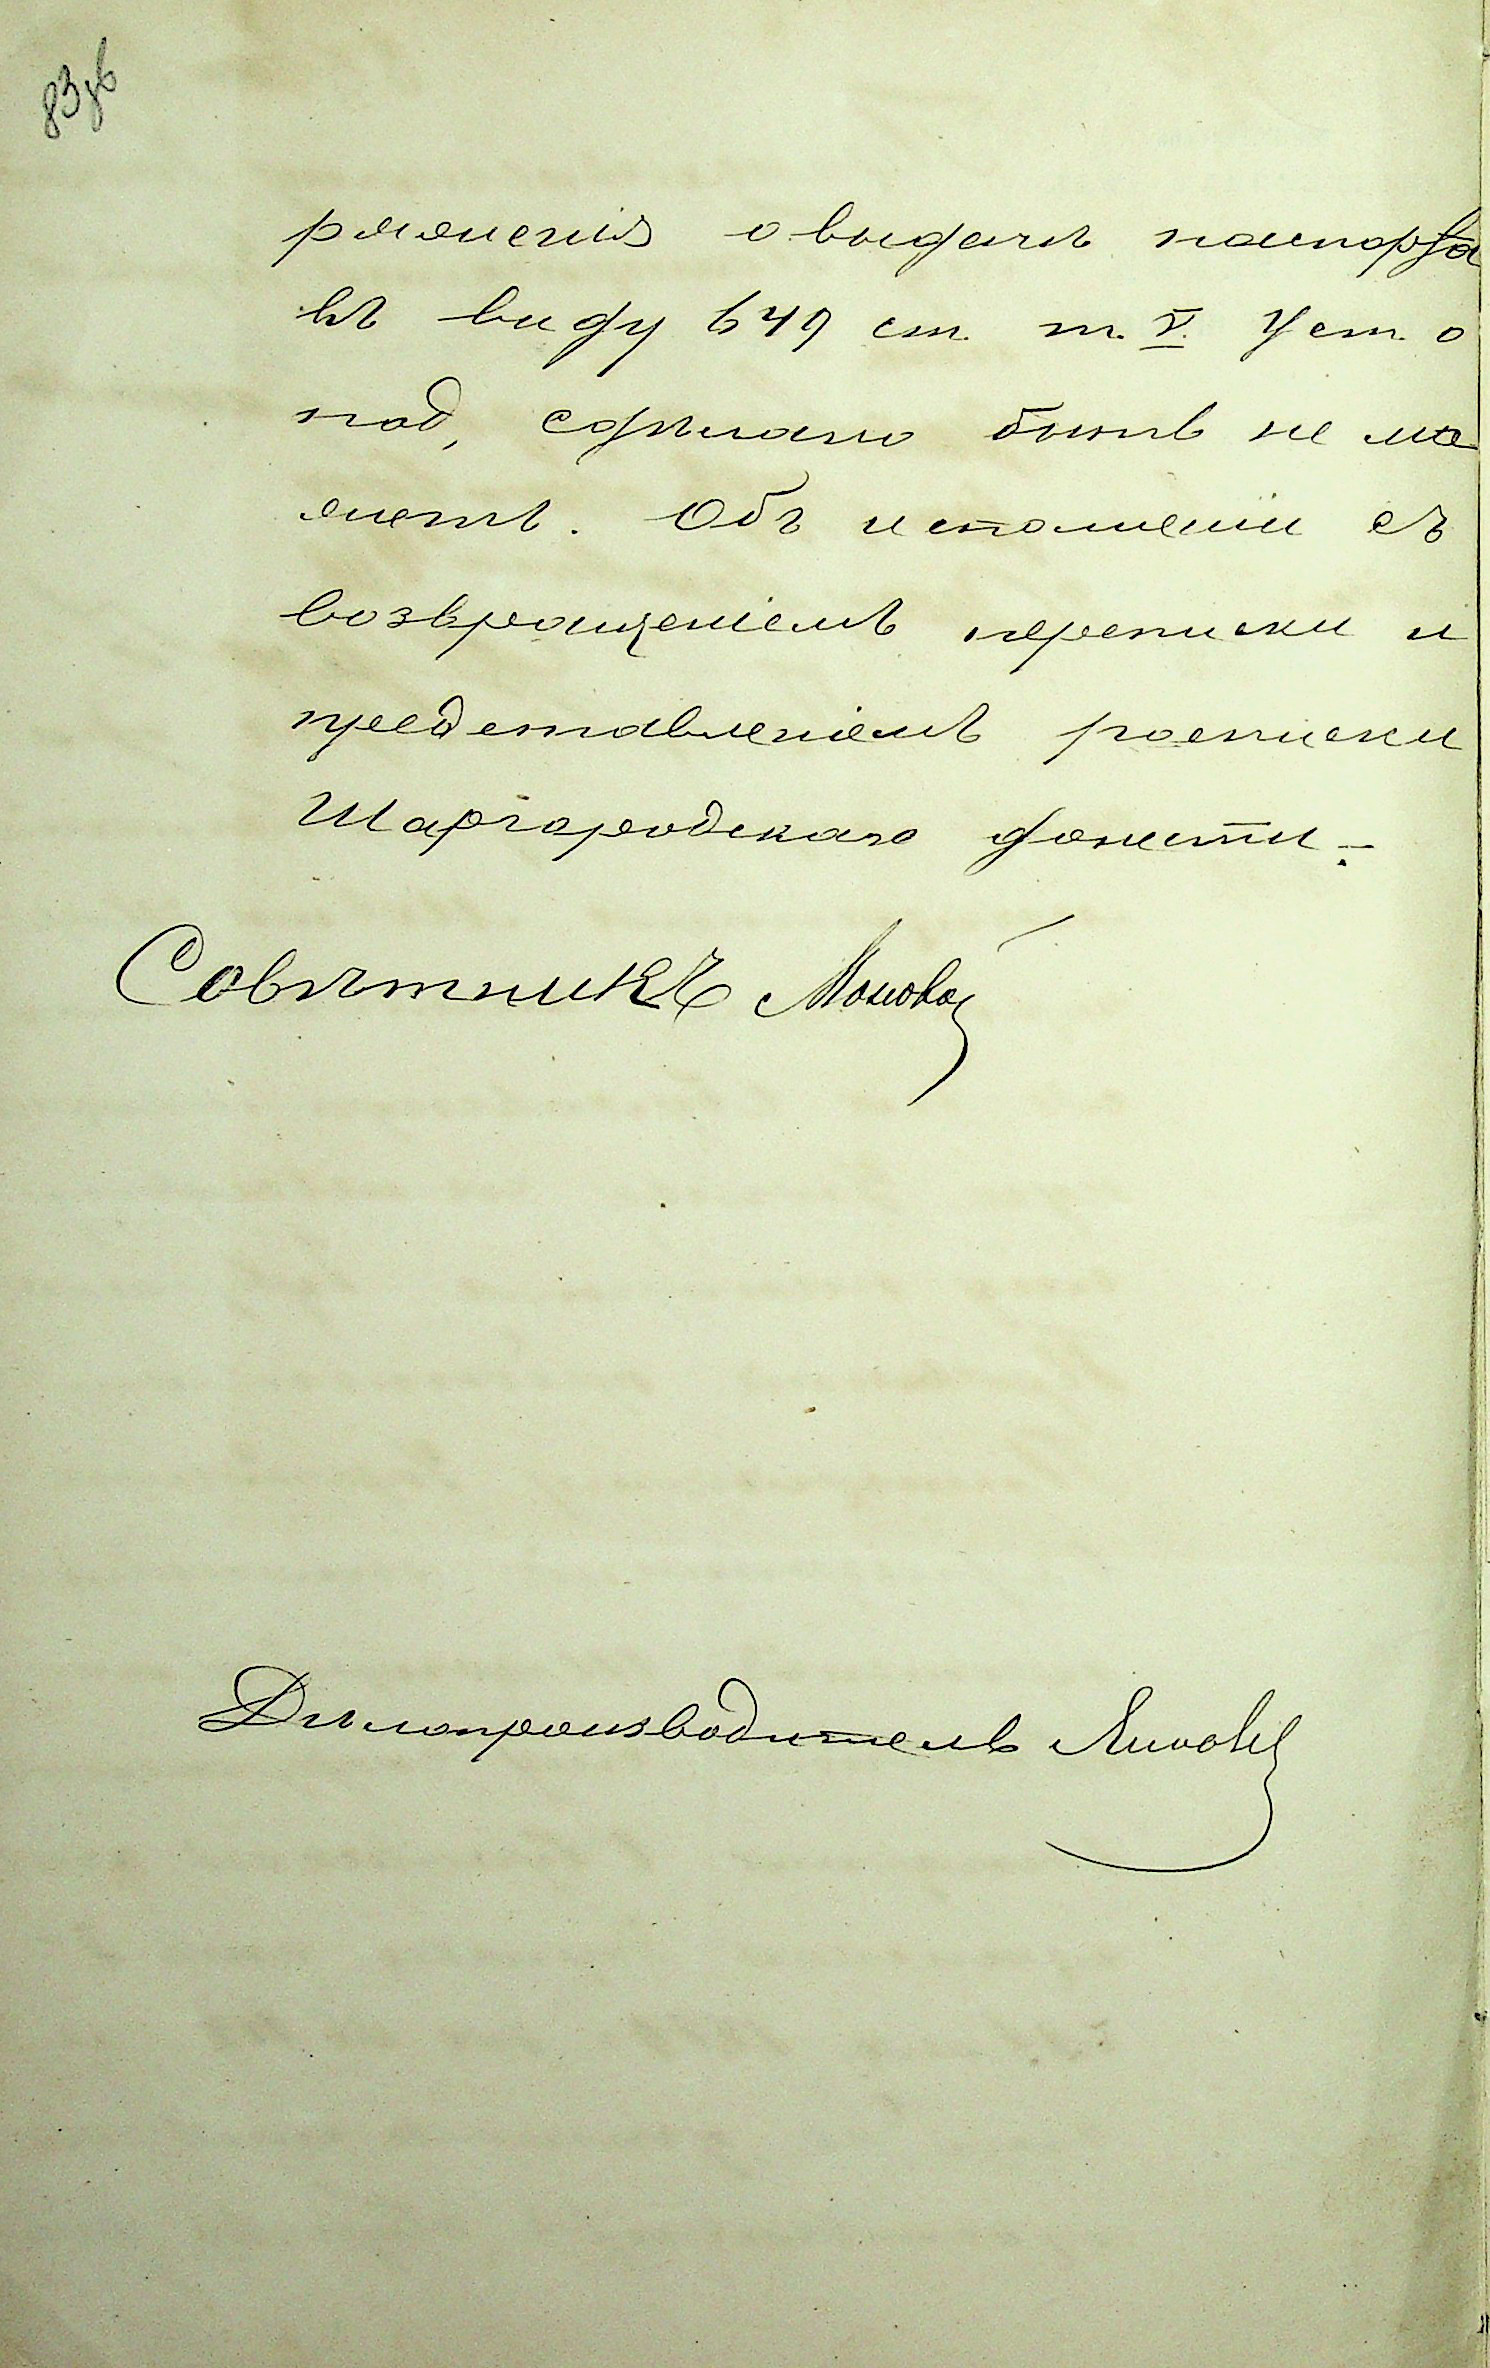 83 об
ряжения о выдачѣ паспорта
въ виду 649 ст. т. V. Уст. о
под, сдѣлано быть не мо
жетъ. Объ исполненіи съ
возвращеніемъ переписки и
представленіемъ росписки
Шаргородскаго донести.
Совѣтникъ
Дѣлопроизводитель